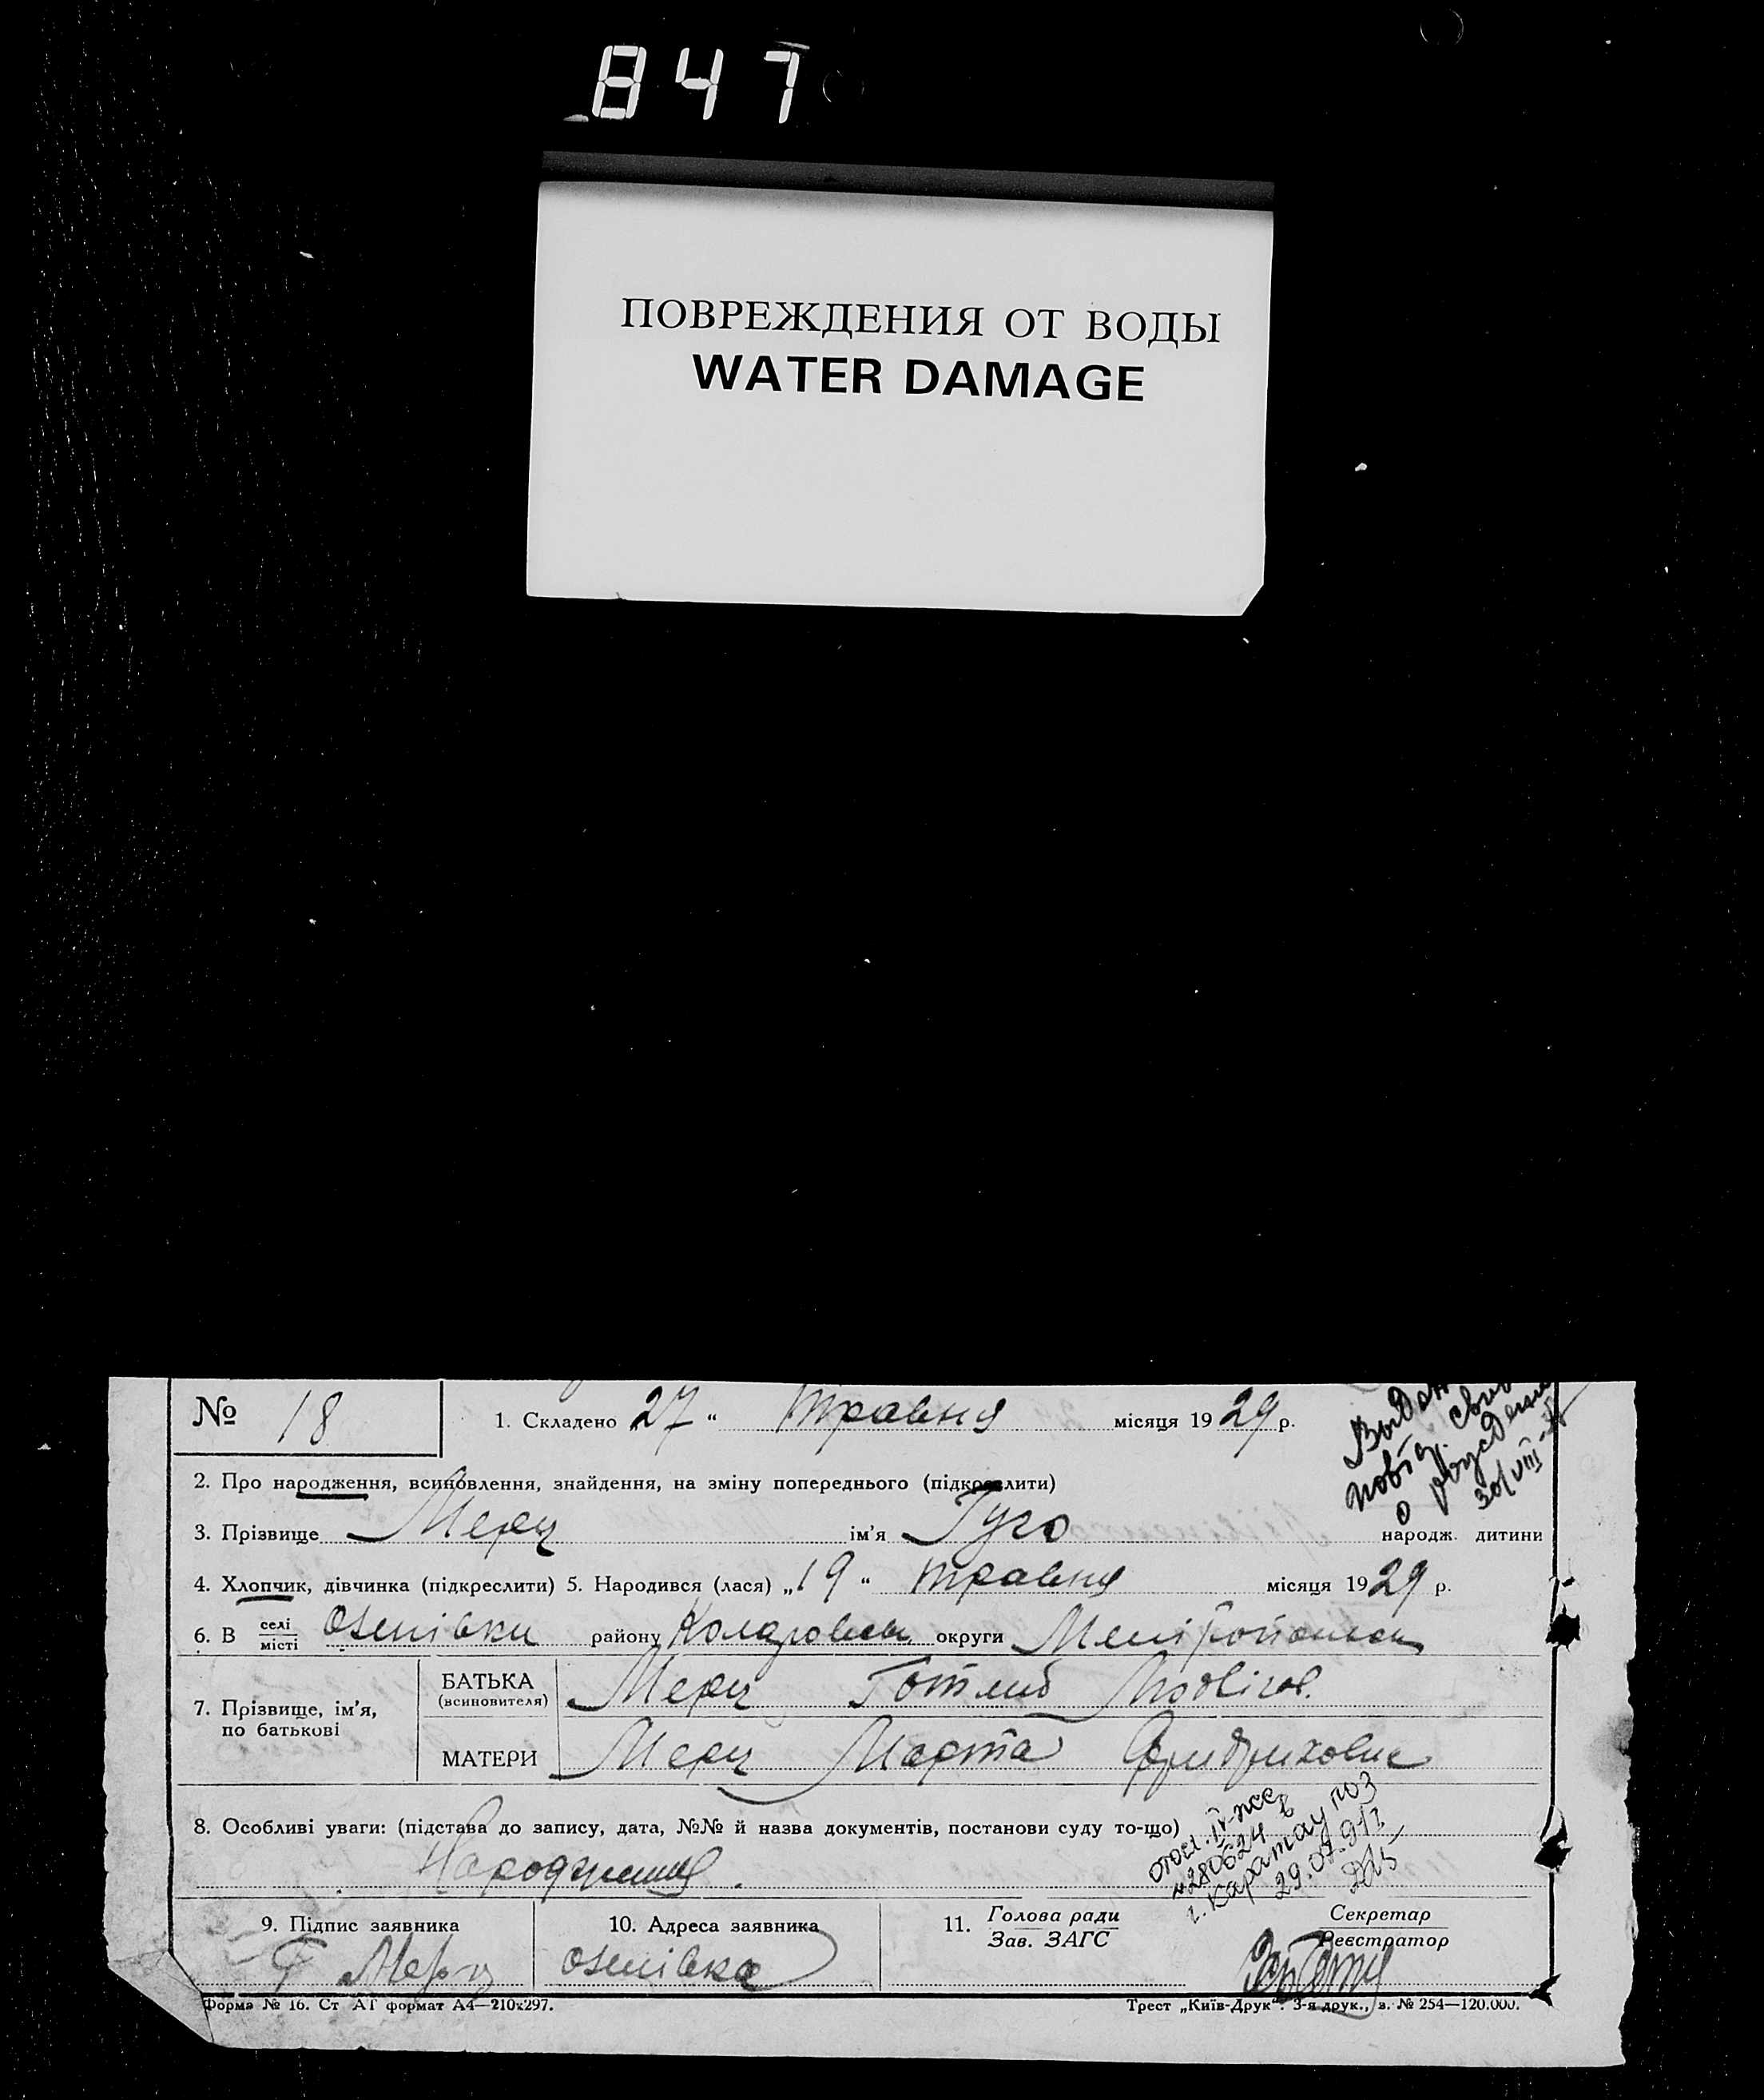 847
ПОВРЕЖДЕНИЯ ОТ ВОДЫ
WATER DAMAGE
№ 18
1. Складено 27 " травня місяця 1929 р.
Выдан
повт. свид
о рождении
30/VIII
2. Про народження, всиновлення, знайдення, на зміну попереднього (підкреслити)
3. Прізвище Мерц ім'я Гуго народж. дитини
4. Хлопчик, дівчинка (підкреслити) 5. Народився (лася) „19 " травня місяця 1929 р.
6. В селі місті району округи
7. Прізвище, ім'я, по батькові
БАТЬКА (всиновителя) Мерц Готлиб
МАТЕРИ Мерц Марта Фридриховна
8. Особливі уваги: (підстава до запису, дата, №№ й назва документів, постанови суду то-що)
280624
г. Каратау
29.07.91
Народження.
9. Підпис заявника 10. Адреса заявника 11. Голова ради Зав. ЗАГС Секретар Реєстратор
Г Мерц
Форма № 16. Ст АГ формат А4—210х297.
Трест „Київ-Друк". 3-я друк., з. № 254—120.000.